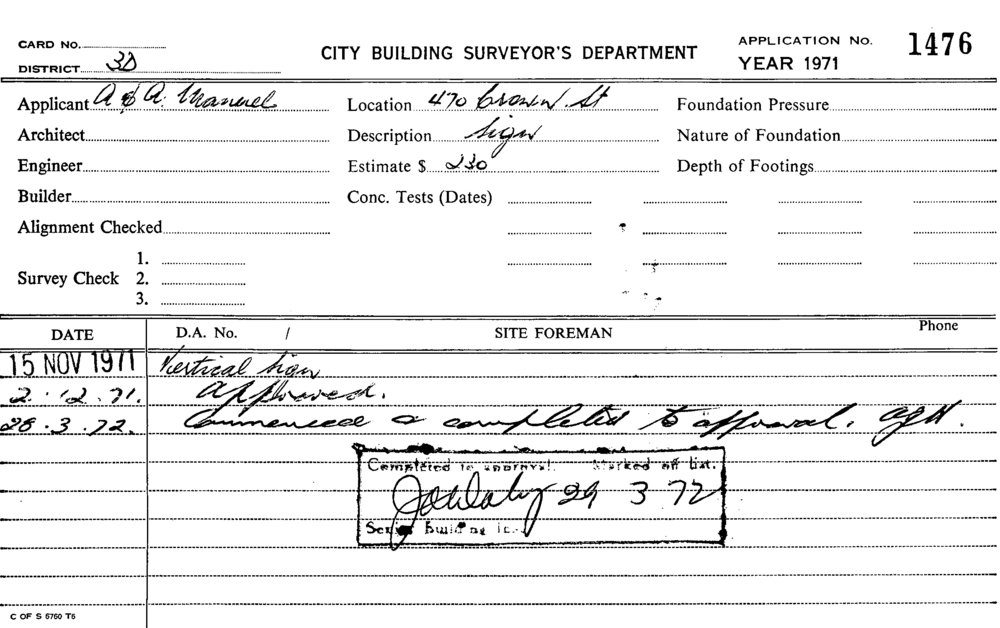 CARD NO.
CITY BUILDING SURVEYOR'S DEPARTMENT
APPLICATION No. 1476
DISTRICT 3D
YEAR 1971
Applicant A & A. Manuel Location 470 Crown St Foundation Pressure
Architect Description Sign Nature of Foundation
Engineer Estimate $ 230 Depth of Footings
Builder Conc. Tests (Dates)
Alignment Checked
1.
Survey Check 2.
3.
DATE D.A. No. / SITE FOREMAN Phone
15 NOV 1971 Vertical Sign
2.12.71. Approved.
28.3.72. Commenced & completed to approval.
Completed to approval. Marked off list.
29 3 72
Senior Building
C OF S 5750 T5